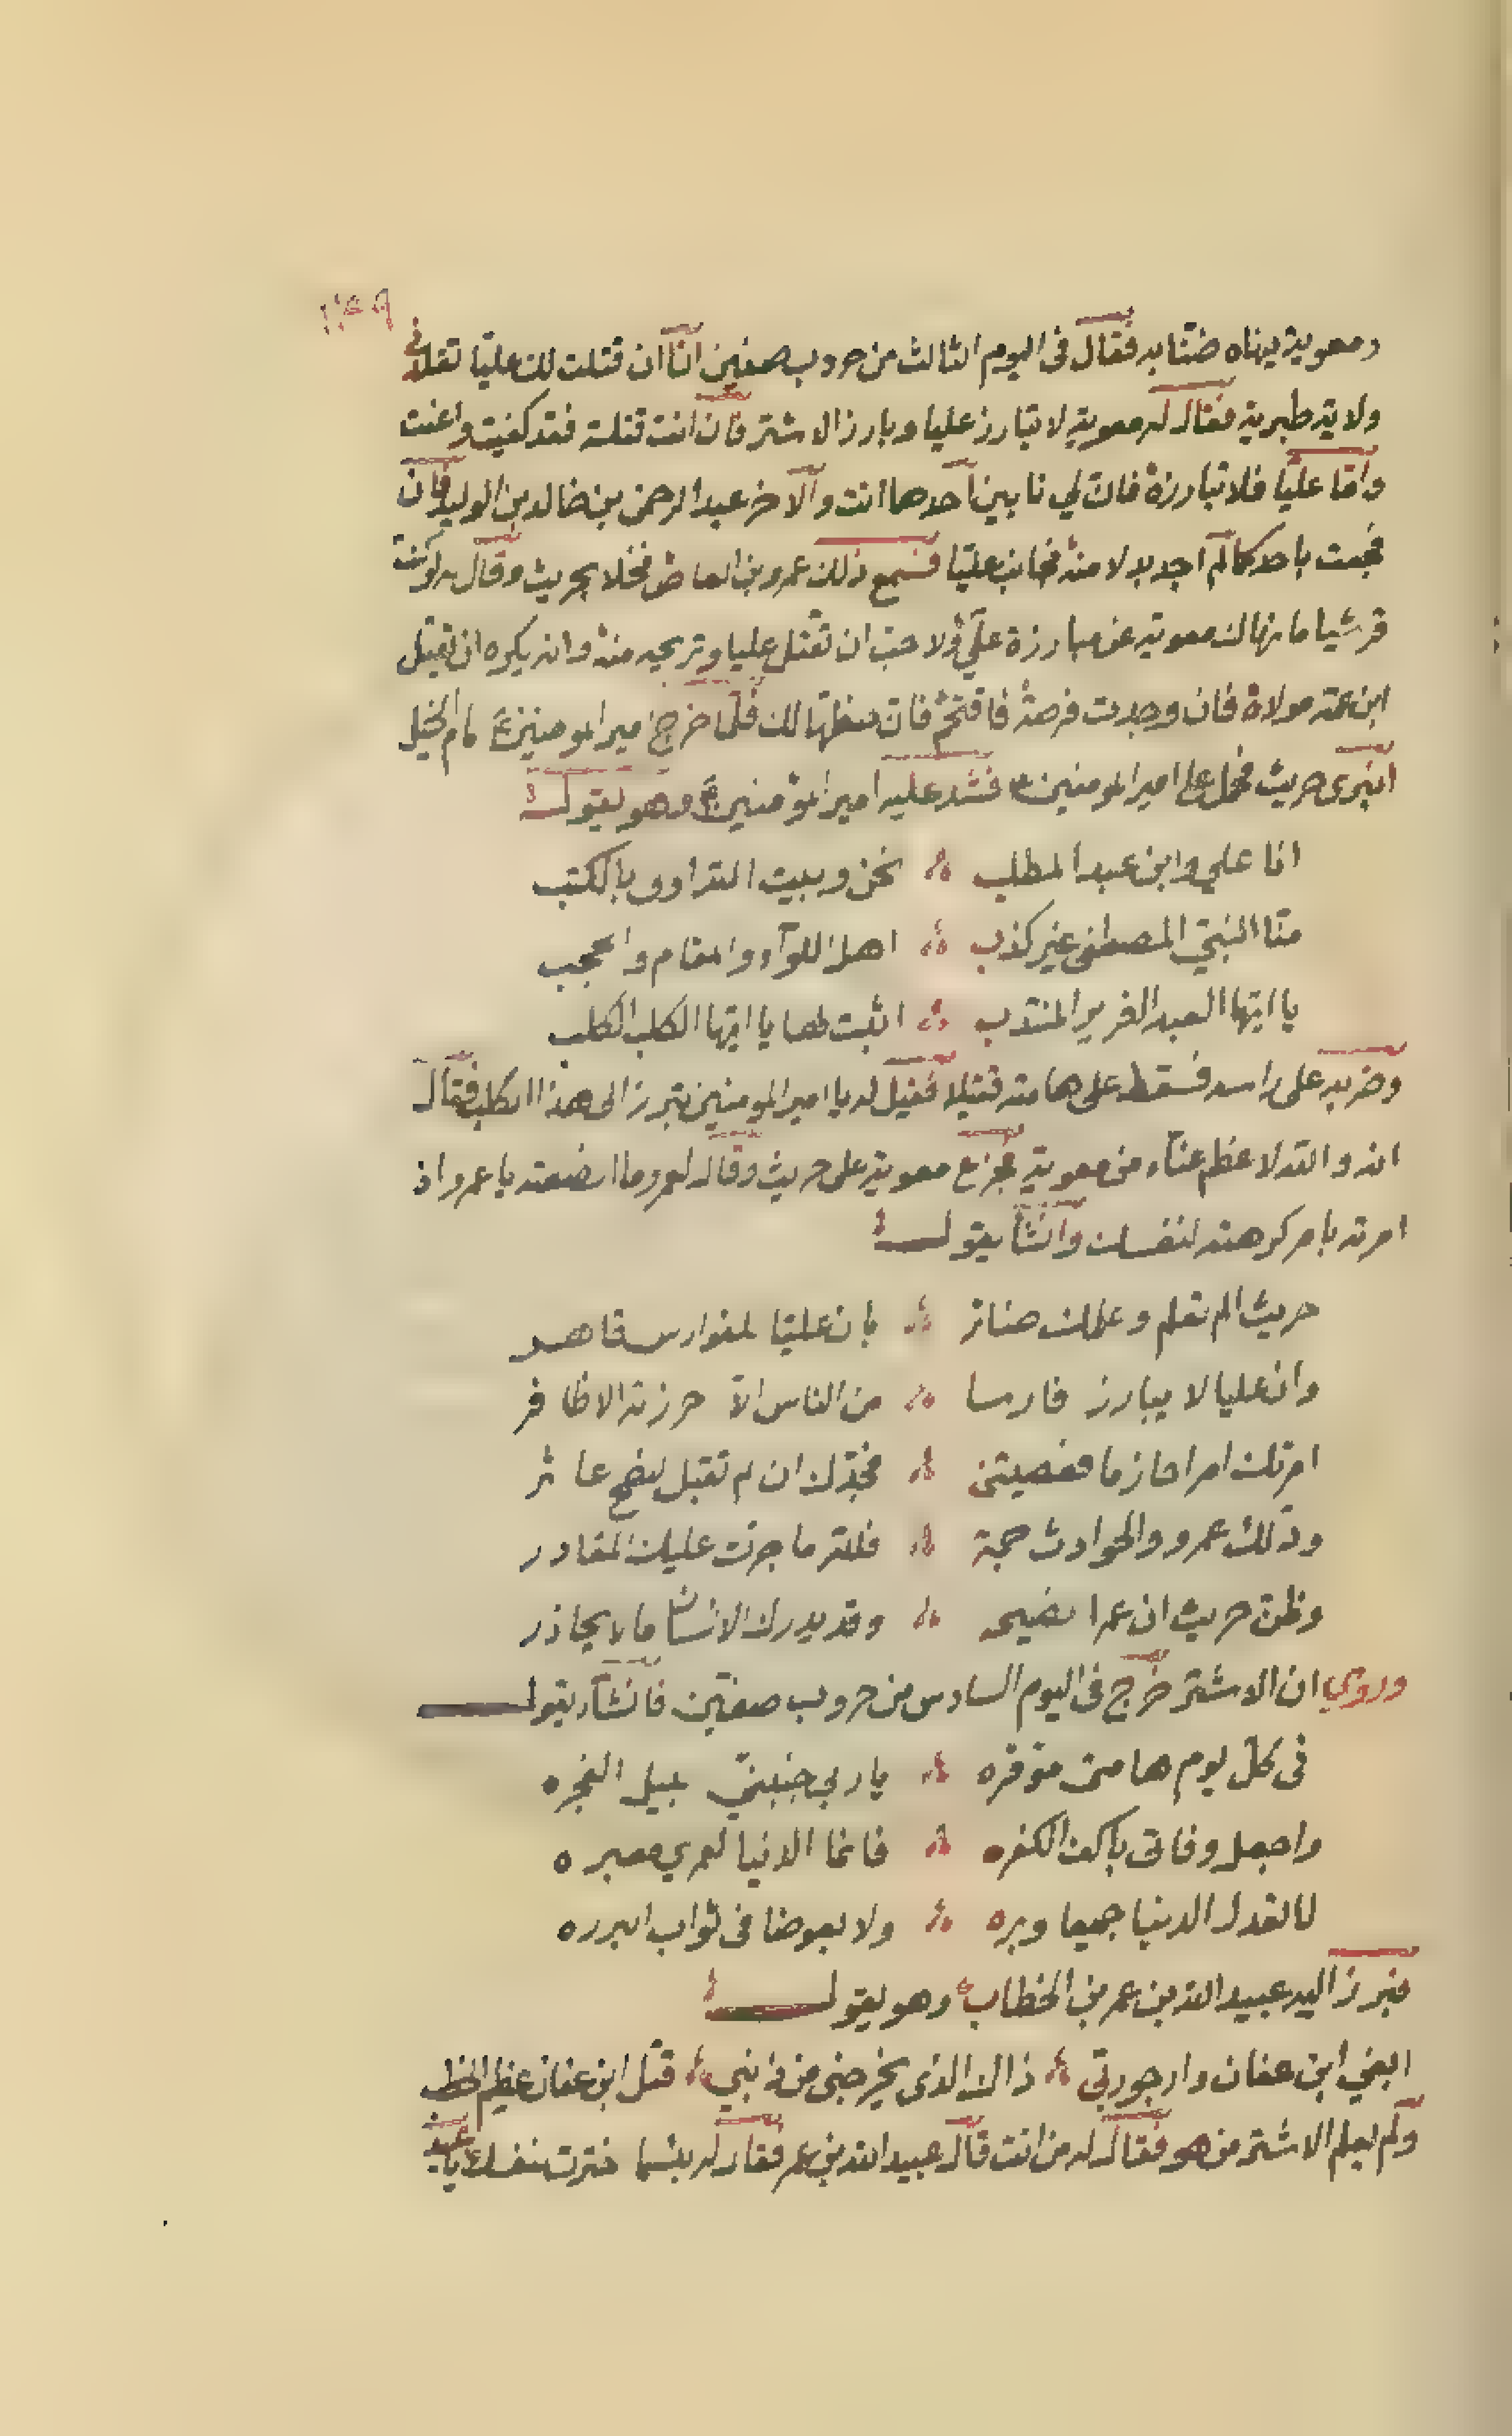 ١٣٩
ومعوية ينهاه ضنّا به فقال فى اليوم الثالث من حروب صفين انا ان قتلت لك عليّا تقلدنى
ولاية طبرية فقال له معوية لا تبارز عليا وبارز الاشتر فان انت قتلته فقد كفيت واغنت
وامّا عليّا فلا تبارزه فان لي نابين احدهما انت والآخر عبد الرحمن بن خالد بن الوليد فان
فجعت باحدكما لم اجد بدلا منه فجانب عليّا فسمع ذلك عمرو بن العاص فخلا بحريث وقال له لو كنت
قرشيا ما نهاك معوية عن مبارزة عليّ ولاحبّ ان تقتل عليا وتريحه منه وانه يكره ان تقتل
ابن عمه مولاه فان وجدت فرصة فاقتحم فان حظها لك فلمّا خرج امير المومنين ع امام الخيل
انبرى حريث فحمل على امير المومنين ع فشد عليه امير المؤمنين ع وهو يقول
انا علي وابن عبد المطلب نحن وبيت الله اولى بالكتب
منّا النبيّ المصطفى غير كذب اهل اللوآء والمقام والحجب
يا ايّها العبد الغرير المنتدب اثبت لها يا ايّها الكلب الكلب
وضربه على راسه فسقط على هامته قتيلا فقيل له يا امير المومنين تبرز الى هذا الكلب فقال
انه والله لاعظم عنآء من معوية فجزع معوية على حريث وقال لعمرو ما انصفته يا عمرو اذ
امرته بامر كرهته لنفسك وانشأ يقول
حريث الم تعلم وعلمك ضائر بان عليّا للفوارس قاهر
وان عليا لا يبارز فارسا من الناس الّا حرزته الاظافر
امرتك امرا حازما فعصيتنى فجدّك ان لم تقبل النصح عاثر
ودلّاك عمرو والحوادث جمة فلله ما جرت عليك المقادر
وظن حريث ان عمرا نصيحه وقد يدرك الانسان ما لا يحاذر
وروي ان الاشتر خرج فى اليوم السادس من حروب صفّين فانشآء يقول
فى كل يوم هامتى موقره يا رب جنبنى سبيل الفجره
واجعل وفاتى باكف الكفره فانما الدنيا لعمري معبره
لا تعدل الدنيا جميعا وبره ولا بعوضا فى ثواب البرره
فبرز اليه عبيد الله بن عمر بن الخطاب وهو يقول
ابغي ابن عفان وارجو ربّى ذاك الذى يخرجنى من ذنبي قتل ابن عفان عظيم الخطب
ولم يعلم الاشتر من هو فقال له من انت قال عبيد الله بن عمر فقال له بئسما اخترت لنفسك يا